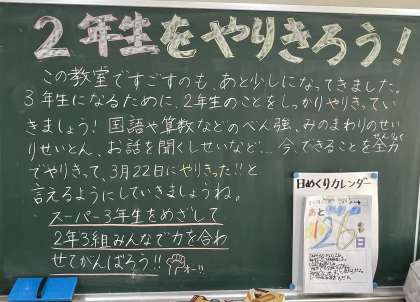 2年生をやりきろう!
この教室ですごすのも、あと少しになってきました。
3年生になるために、2年生のことをしっかりやりきってい
きましょう! 国語や算数などのべん強、みのまわりのせい
りせいとん、お話を聞くしせいなど… 今、できることを全力
ぜんりょく
でやりきって、3月22日にやりきった!!と
言えるようにしていきましょうね。
スーパー3年生をめざして
2年3組みんなで力を合わ
せてがんばろう!! オー!!
日めくりカレンダー
あと
26
日